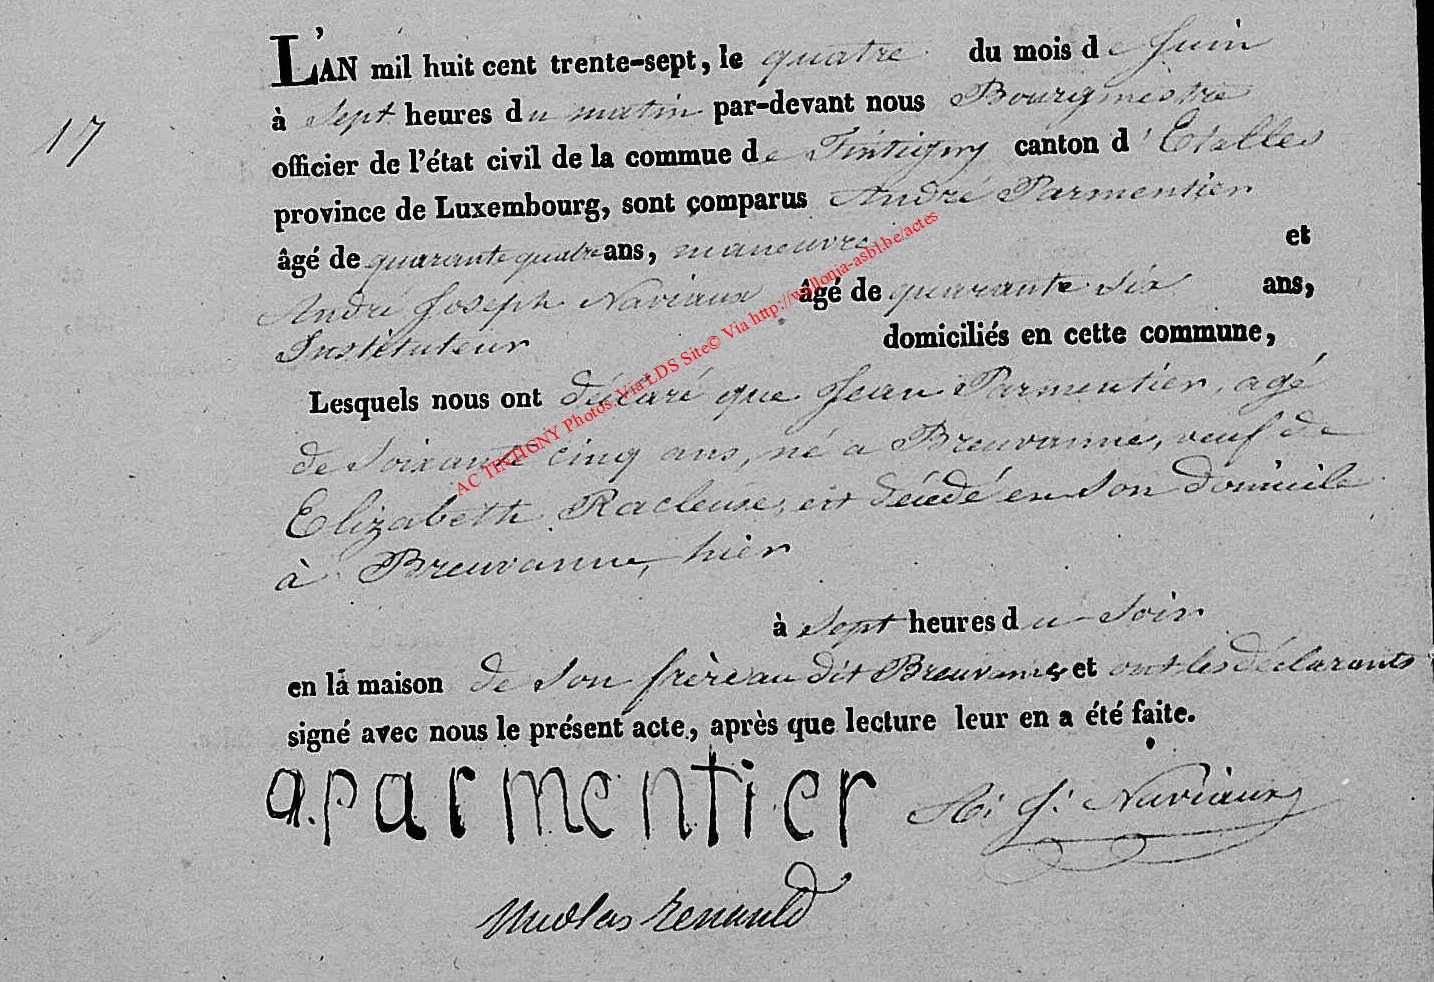 L'AN mil huit cent trente-sept, le quatre du mois de Juin
17
à Sept heures du matin par-devant nous Bourgmestre
officier de l'état civil de la commue de Tintigny canton d'Etalles
province de Luxembourg, sont comparus André Parmentier
âgé de quarante quatre ans, manœuvre et
André Joseph Naviaux âgé de quarante six ans,
Instituteur domiciliés en cette commune,
Lesquels nous ont déclaré que Jean Parmentier, agé
de Soixante cinq ans, né a Breuvanne, veuf de
Elizabeth Racleuse, est décédé en Son domicile
à Breuvanne, hier
à Sept heures du Soir
en la maison de Son frère au dit Breuvanne et ont les déclarants
signé avec nous le présent acte, après que lecture leur en a été faite.
a.parmentier A. J. Naviaux
Nicolas Renauld
AC TINTIGNY Photos Via LDS Site© Via http://wallonia-asbl.be/actes